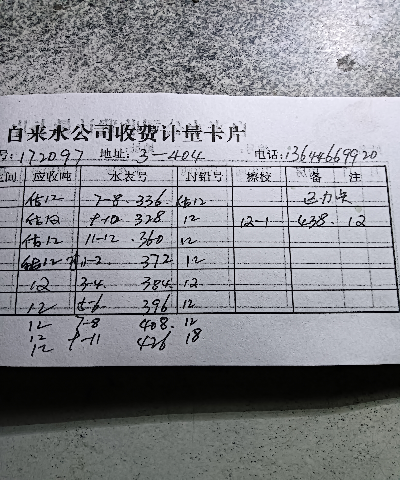 自来水公司收费计量卡片
号:172097 地址:3-404 电话:13644669920
间 应收吨 水表号 封铅号 擦校 备 注
估12 7-8 336 估12
估12 9-10 328 12 12-1 438. 12
估12 11-12 360 12
估12 1-2 372 12
12 3-4 384 12
12 5-6 396 12
12 7-8 408. 12
12
12 9-11 426 18